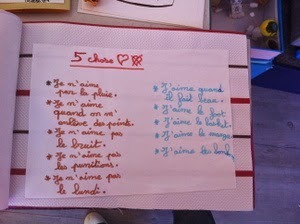 5 chose
* Je n'aime
pas la pluie.
* Je n'aime
quand on m'
enlève des points.
* Je n'aime pas
le bruit.
* Je n'aime pas
les punitions.
* Je n'aime pas
le lundi.
* J'aime quand
il fait beau.
* J'aime le foot
* J'aime le basket.
* J'aime le
* J'aime les